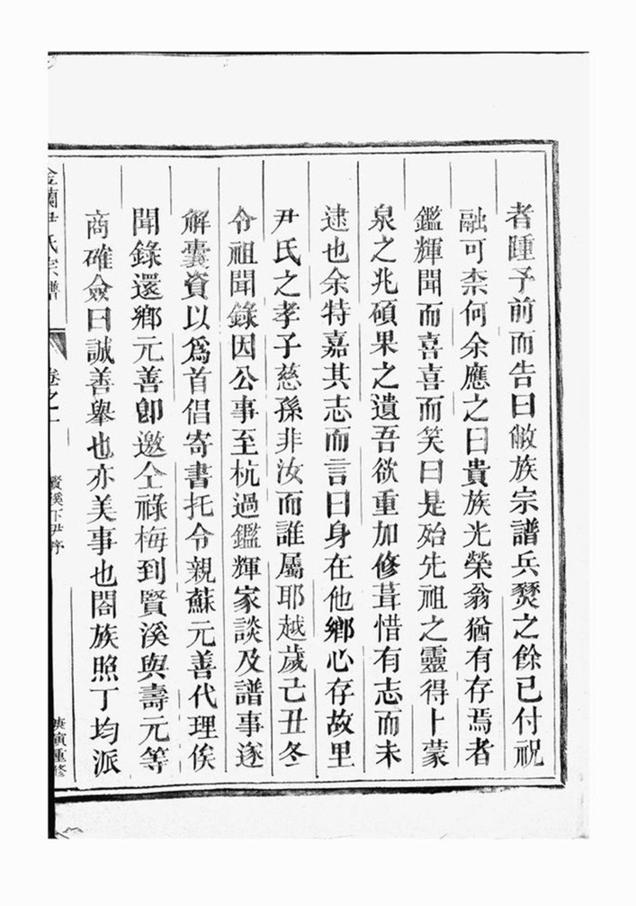 者踵予前而告曰敝族宗譜兵燹之餘已付祝
融可柰何余應之曰貴族光榮翁猶有存焉者
鑑輝聞而喜喜而笑曰是殆先祖之靈得卜蒙
泉之兆碩果之遺吾欲重加修葺惜有志而未
逮也余特嘉其志而言曰身在他鄉心存故里
尹氏之孝子慈孫非汝而誰屬耶越歲己丑冬
令祖聞錄因公事至杭過鑑輝家談及譜事遂
解囊資以爲首倡寄書托令親蘇元善代理俟
聞錄還鄉元善卽邀仝祿梅到賢溪與壽元等
商確僉曰誠善舉也亦美事也閤族照丁均派
金蘭尹氏宗譜
卷之一
賢溪下尹序
庚寅重修